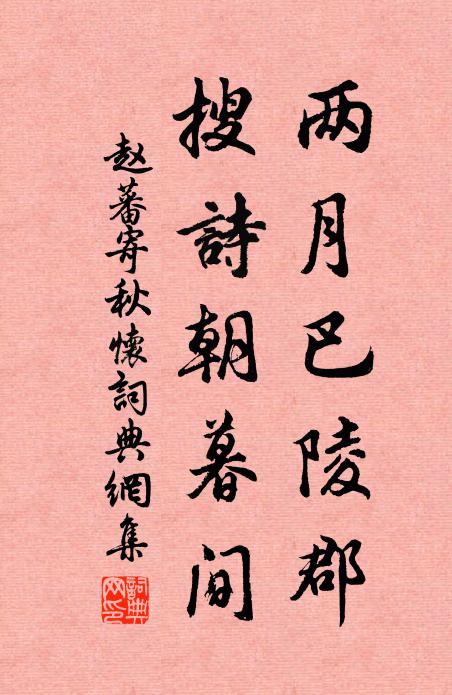 两月巴陵郡
搜詩朝暮间
赵蕃寄秋懷詞典網集
詞典网印